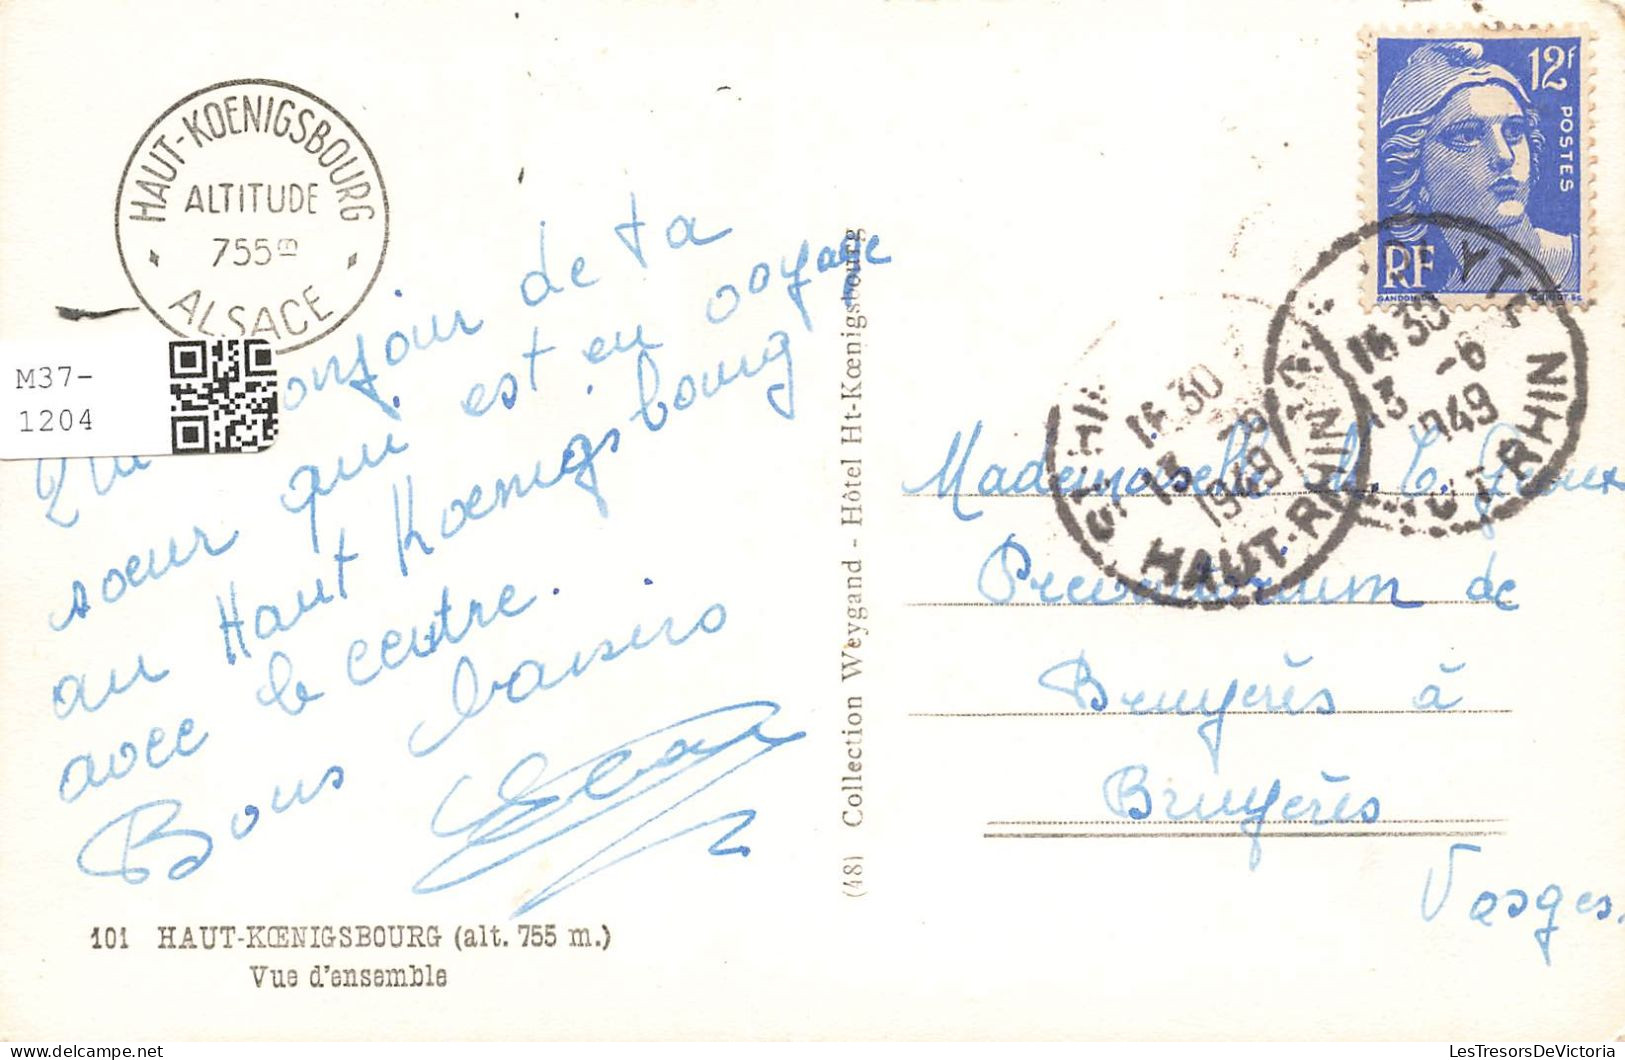 HAUT-KOENIGSBOURG
ALTITUDE
755m
ALSACE
M37-
1204
onjour de ta
soeur qui est en voyage
au Haut Koenigsbourg
avec le centre.
Bons baisers
101 HAUT-KŒNIGSBOURG (alt. 755 m.)
Vue d'ensemble
(48) Collection Weygand - Hôtel Ht-Kœnigsbourg
12f
POSTES
RF
GANDON DEL.
16 30
13 -6
1949
HAUT-RHIN
16 30
13 -6
1949
HAUT-RHIN
Mademoiselle M. C.
Preventorium de
Bruyères à
Bruyères
Vosges.
LesTresorsDeVictoria